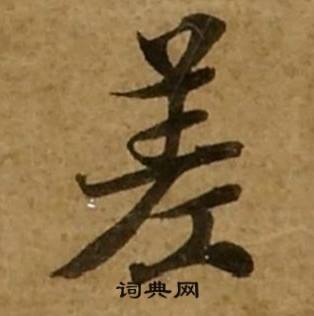 差
词典网